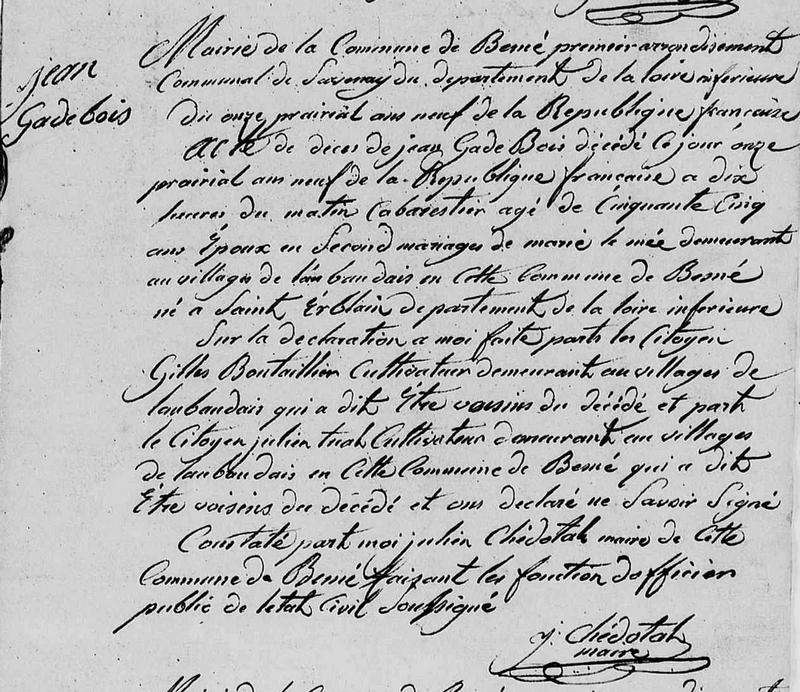 jean
Gadebois
Mairie de la Commune de Besné premier arrondisement
Communal de Savenay du departement de la loire inferieure
du onze prairial ans neuf de la Republique francaise
acte de deces de jean Gade Bois décédé ce jour onze
prairial ans neuf de la Republique francaise a dix
heures du matin Cabarestier agé de Cinquante Cinq
ans Époux en Second mariages de marie le mée demeurant
au villages de laubaudais en Cette Commune de Besné
né a Saint Erblain departement de la loire inferieure
Sur la declaration a moi faite parts les Citoyen
Gilles Boutaillier Cultivateur demeurant au villages de
laubaudais qui a dit Être voisins du décédé et part
le Citoyen julien tual Cultivateur demeurant au villages
de laubaudais en Cette Commune de Besné qui a dit
Être voisins du décédé et ons declaré ne Savoir Signé
Constaté part moi julien Chédotal maire de Cette
Commune de Besné faisant les fonction dofficier
public de letat Civil Soussigné
j. Chédotal
maire